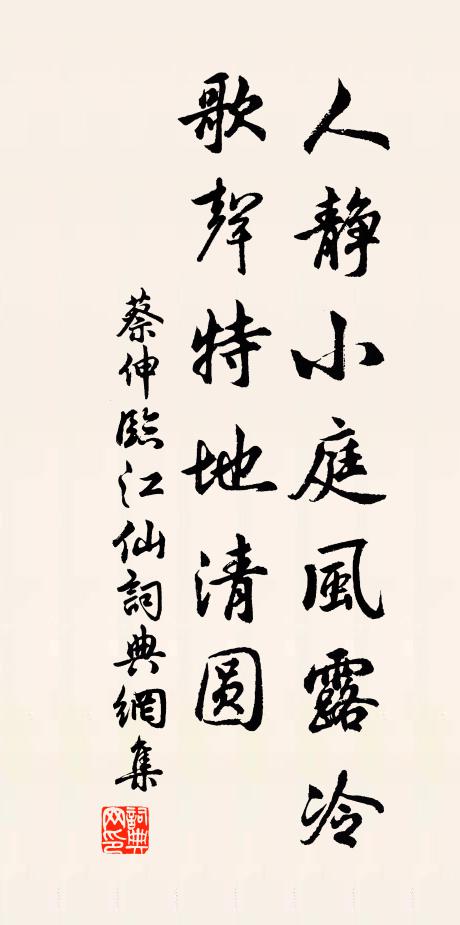 人静小庭風露冷
歌聲特地清圆
蔡伸臨江仙詞典網集
詞典网印